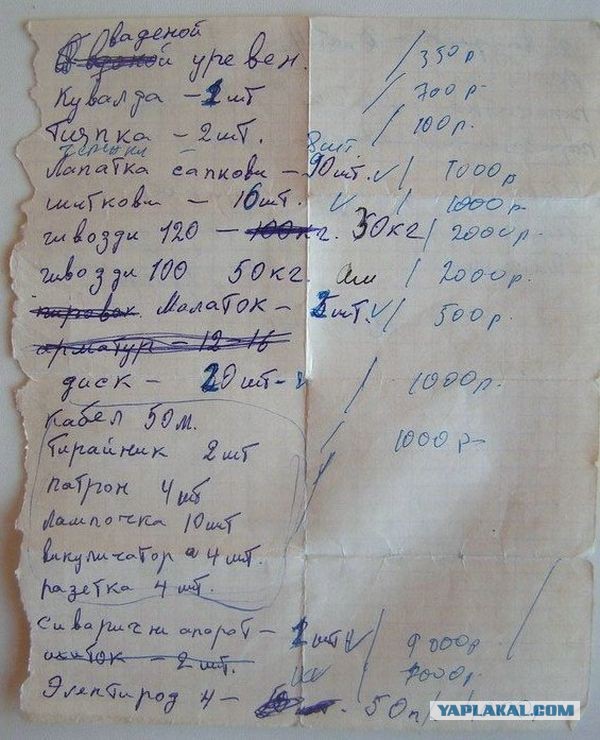 Ваденой
уревен. 350р
Кувалда – 2шт 700р.
Тияпка – 2шт. 100р.
черынки – 8шт.
Лапатка сапкови – 90шт. 1000р
шитковы – 16шт. 1000р.
гивозди 120 – 100кг. 50кг 2000р.
гивозди 100 50кг. 2000р.
пировак Малаток – шт. 500р.
арматур – 12–16
диск – 20шт 1000р.
Кабел 50м.
Тирайник 2шт 1000р
патрон 4шт
лампочка 10шт
викуличатор а 4шт.
разетка 4шт.
Сиваричнй апорот – 1шт 9000р
– 2шт. 1000р.
Элептирод 4 – 50п
YAPLAKAL.COM